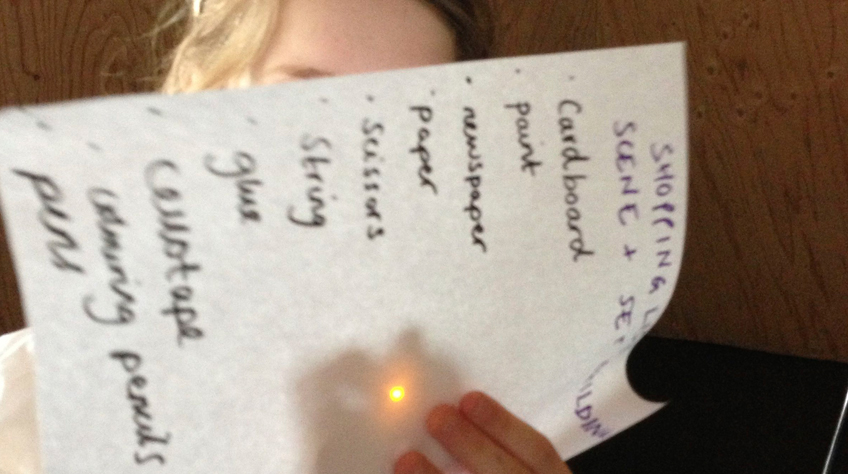 SHOPPING
SCENE + SET
• Cardboard
• paint
• newspaper
• paper
• Scissors
• String
• glue
• cellotape
• colouring pencils
• pens